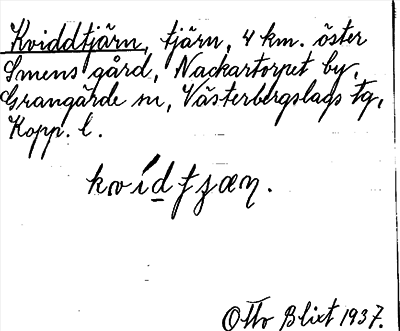 Kviddtjärn, tjärn, 4 km. öster
Smens gård, Nackartorpet by,
Grangärde sn, Västerbergslags tg,
Kopp. l.
kvi´dtjæṇ.
Otto Blixt 1937.